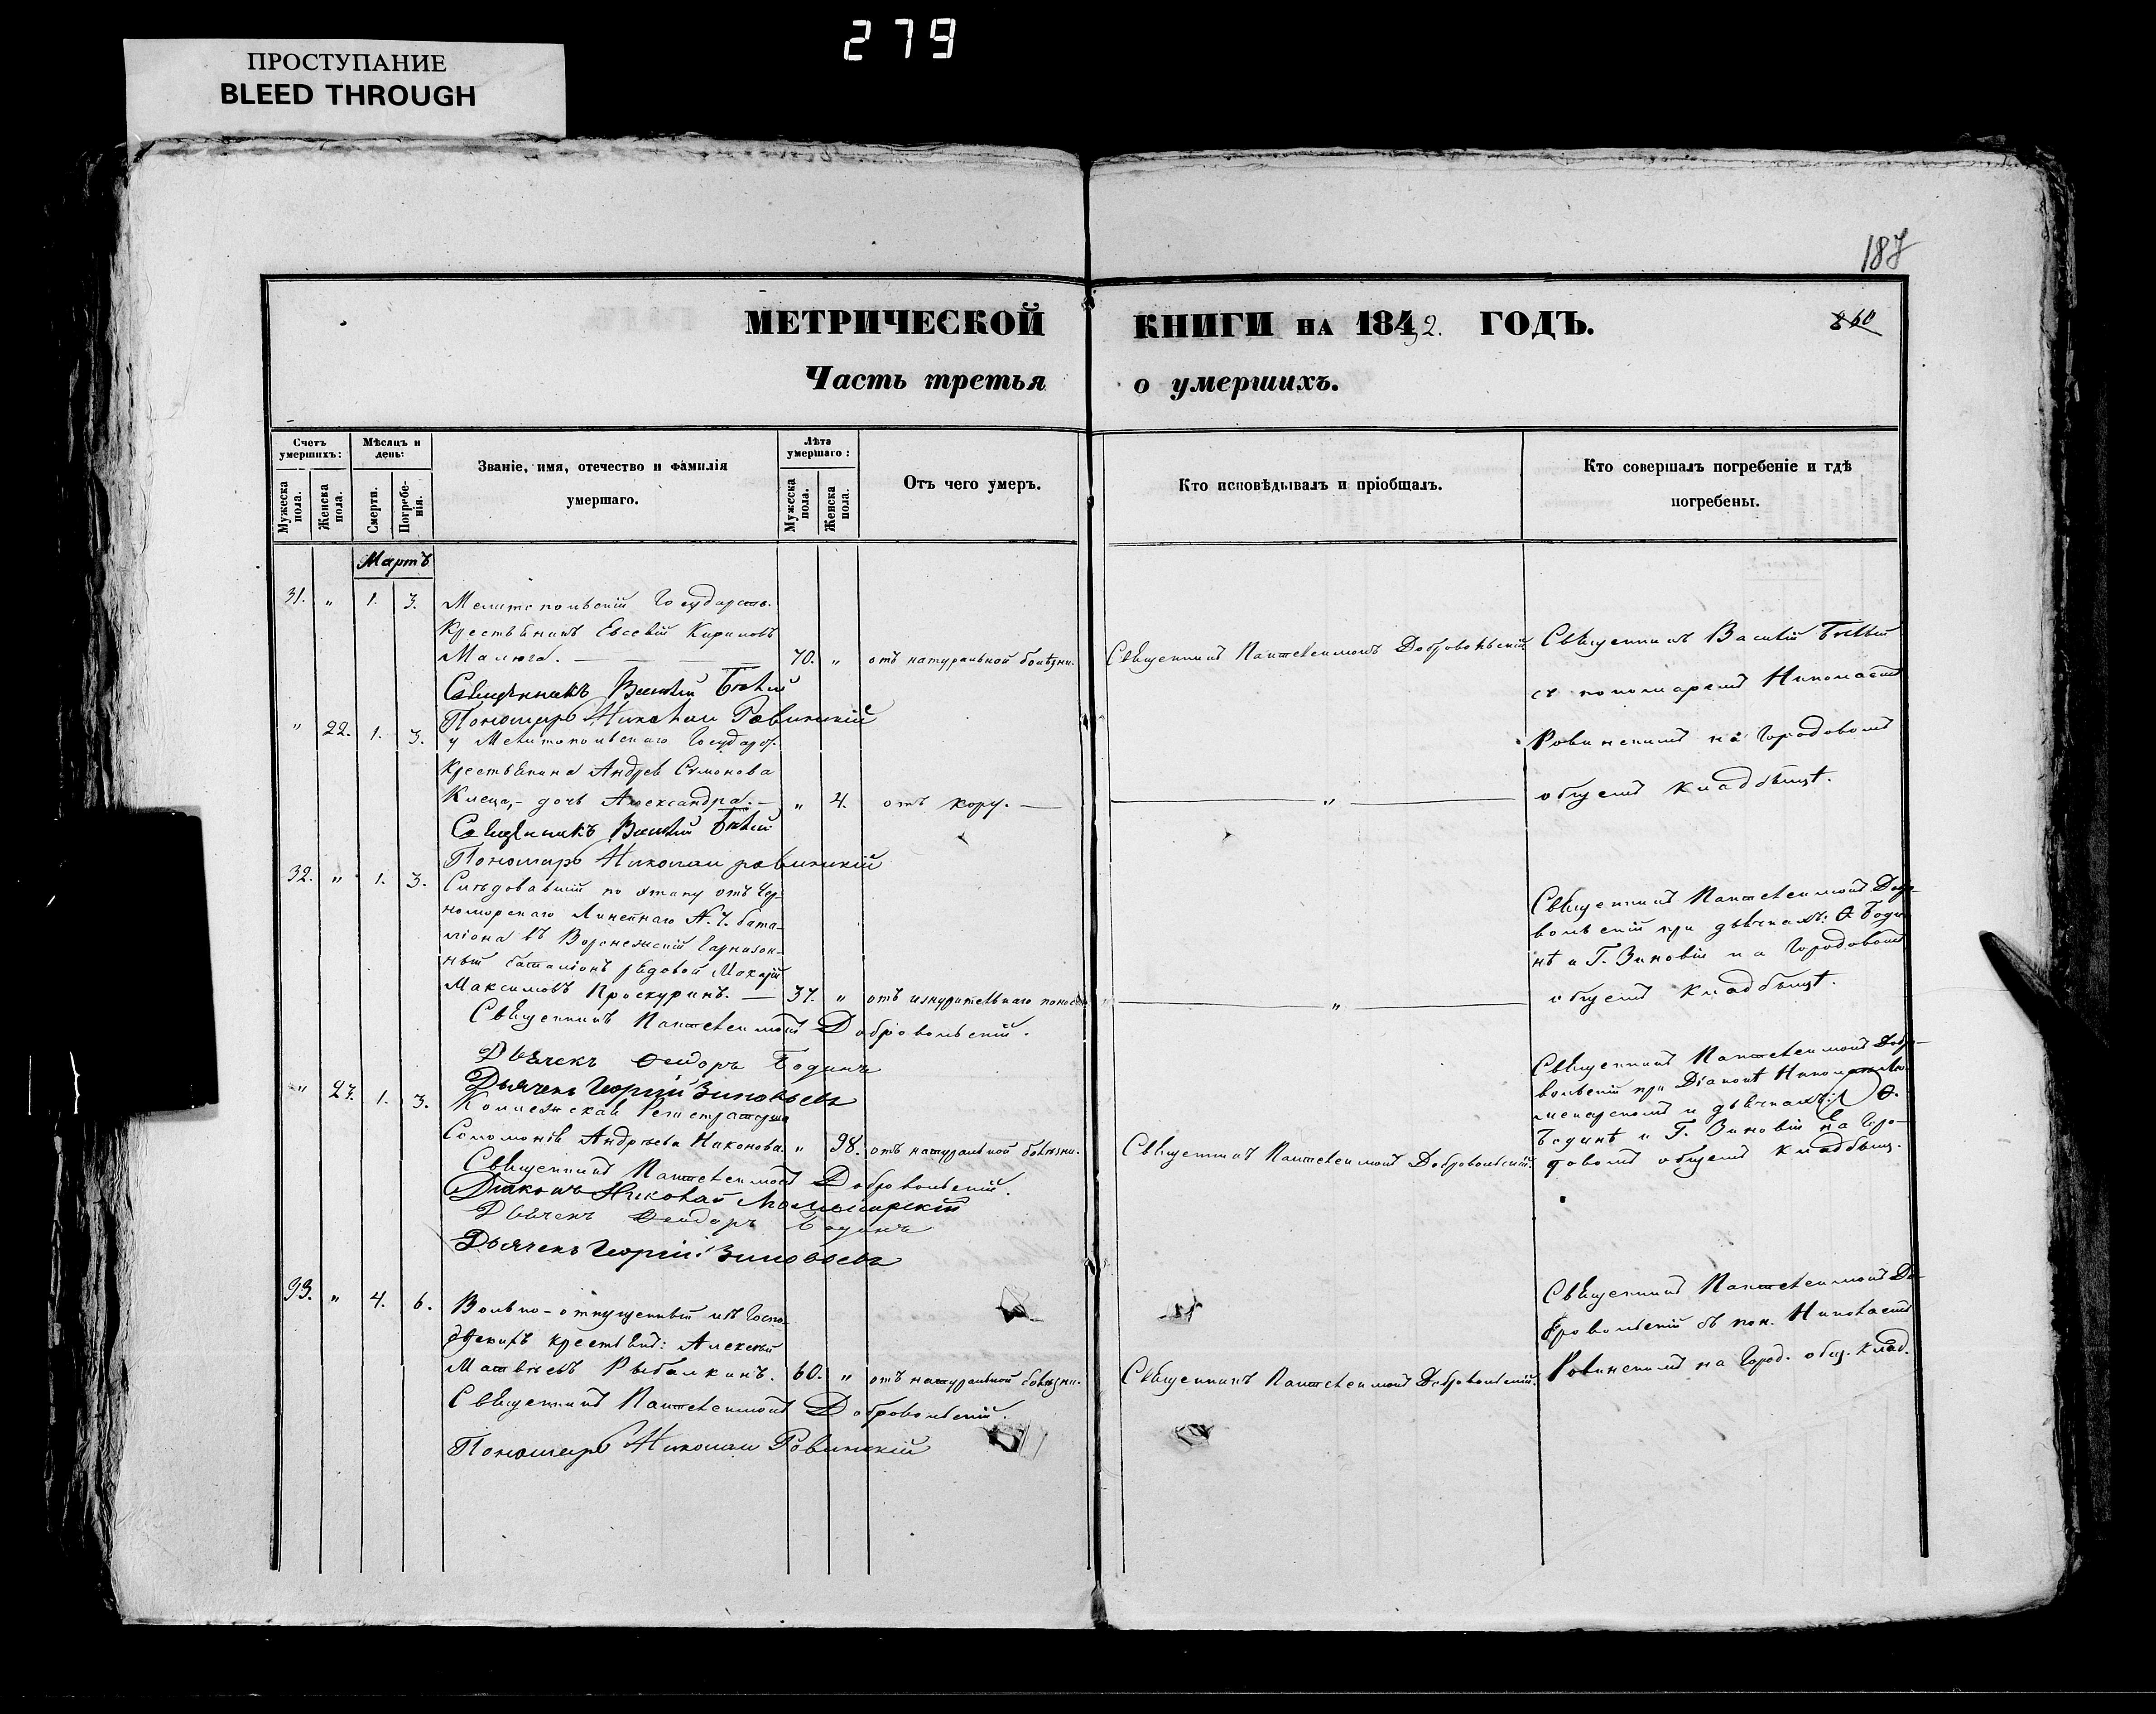 279
ПРОСТУПАНИЕ
BLEED THROUGH
187
МЕТРИЧЕСКОЙ КНИГИ НА 1842. ГОДЪ.
860
Часть третья о умершихъ.
Счетъ умершихъ:
Мужеска пола.
Женска пола.
Мѣсяцъ и день:
Смерти.
Погребенія.
Званіе, имя, отечество и фамилія умершаго.
Лѣта умершаго:
Мужеска пола.
Женска пола.
Отъ чего умеръ.
Кто исповѣдывалъ и пріобщалъ.
Кто совершалъ погребеніе и гдѣ погребены.
Мартъ
31. " 1. 3. Мелитопольскій Государств.
Крестьянинъ Евсевій Кириловъ
Малюга. 70. " отъ натуральной болѣзни. Священникъ Пантелеимонъ Добровольскій
Священникъ Василій Бѣлый
съ пономаремъ Николаемъ
Ровинскимъ на Городовомъ
общемъ кладбищѣ.
Священникъ Василій Бѣлый
Пономарь Николай Ровинскій
" 22. 1. 3. у Мелитопольскаго Государ.
Крестьянина Андрея Симонова
дочь Александра. " 4. отъ кору. "
Священникъ Василій Бѣлый
Пономарь Николай Ровинскій
32. " 1. 3. Слѣдовавшій по этапу отъ Чер-
номорскаго Линейнаго №. 7. бата-
ліона въ Воронежскій Гарнизон-
ный баталіонъ рядовой Макарій
Максимовъ Проскуринъ. 37. " отъ изнурительнаго поноса "
Священникъ Пантелеимонъ Добро-
вольскій при дьячкахъ: Ѳ. Боди-
нѣ и Г. Зиновіи на Городовомъ
общемъ кладбищѣ.
Священникъ Пантелеимонъ Добровольскій.
Дьячекъ Ѳеодоръ Бодинъ
Дьячекъ Георгій Зиновьевъ
" 23. 1. 3. Коллежская Регистраторша
Соломонія Андреева Никонова. " 98. отъ натуральной болѣзни. Священникъ Пантелеимонъ Добровольскій.
Священникъ Пантелеимонъ Добро-
вольскій при Діаконѣ Николаѣ
и дьячкахъ: Ѳ.
Бодинѣ и Г. Зиновіи на Горо-
довомъ общемъ кладбищ.
Священникъ Пантелеимонъ Добровольскій.
Діаконъ Николай
Дьячекъ Ѳеодоръ Бодинъ
Дьячекъ Георгій Зиновьевъ
33. " 4. 6. Вольно-отпущенный изъ Госпо-
дскихъ крестьянъ: Алексѣй
Матвѣевъ Рыбалкинъ. 60. " отъ натуральной болѣзни. Священникъ Пантелеимонъ Добровольскій.
Священникъ Пантелеимонъ До-
бровольскій съ пон. Николаемъ
Ровинскимъ на Город. общ. клад.
Священникъ Пантелеимонъ Добровольскій.
Пономарь Николай Ровинскій